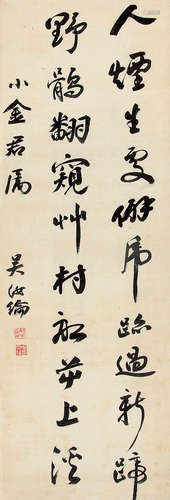 人煙生處僻虎跡過新蹄
野鶻翻窺艸村船逆上溪
小金君屬
吳汝綸